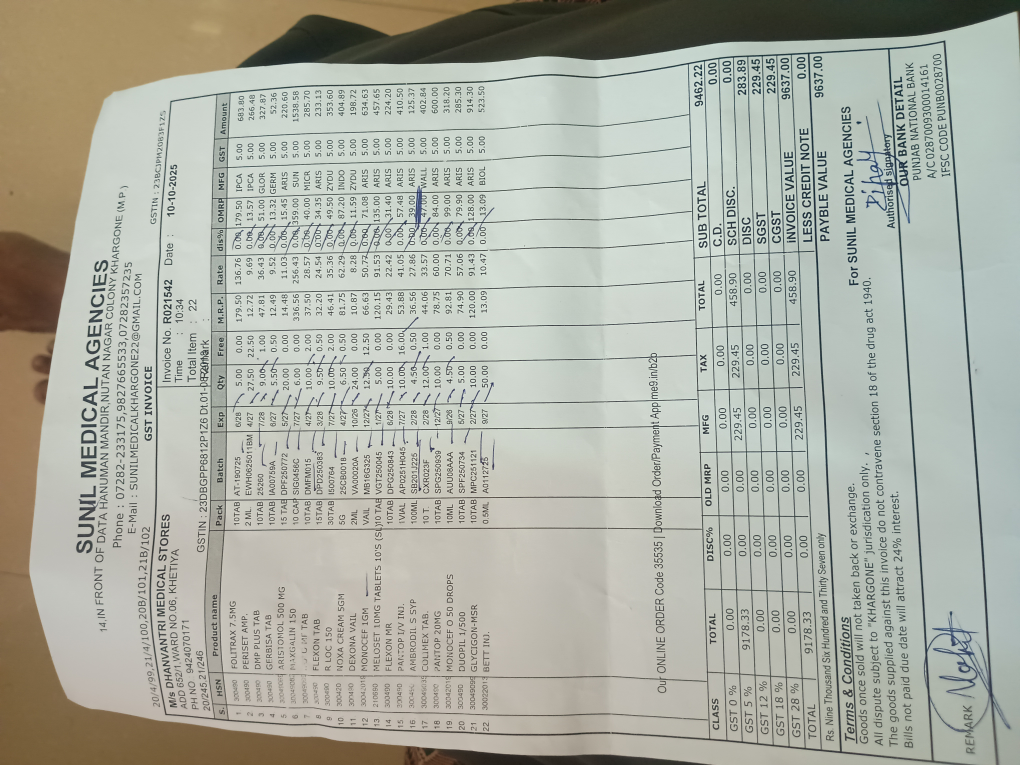 SUNIL MEDICAL AGENCIES
14,IN FRONT OF DATA HANUMAN MANDIR,NUTAN NAGAR COLONY KHARGONE (M.P.)
Phone : 07282-233175,9827665533,07282357235
E-Mail : SUNILMEDICALKHARGONE22@GMAIL.COM
20/4/99,21/4/100,20B/101,21B/102 GST INVOICE GSTIN : 23BCJPM2083F1Z5
M/s DHANVANTRI MEDICAL STORES
ADD 652/1,WARD NO.06, KHETIYA
PH.NO 9424070171
20/245,21/246 GSTIN : 23DBGPP6812P1Z6
Invoice No. R021542 Date : 10-10-2025
Time : 10:34
Total Item : 22
Remark :
S. HSN Product name Pack Batch Exp Qty Free M.R.P. Rate dis% OMRP MFG GST Amount
1. 300490 FOLITRAX 7.5MG 10TAB AT-190725 6/28 5.00 0.00 179.50 136.76 0.00 179.50 IPCA 5.00 683.80
2 300490 PERISET AMP. 2 ML EWH0625011BM 4/27 27.50 22.50 12.72 9.69 0.00 13.57 IPCA 5.00 266.48
3 300490 DMP PLUS TAB 10TAB 25260 7/28 9.00 1.00 47.81 36.43 0.00 51.00 GLOR 5.00 327.87
4 300490 GERBISA TAB 10TAB IA00759A 6/27 5.50 0.50 12.49 9.52 0.00 13.32 GERM 5.00 52.36
5 ARISTOMOL 500 MG 15 TAB DPF250772 5/27 20.00 0.00 14.48 11.03 0.00 15.45 ARIS 5.00 220.60
6 MAXGALIN 150 10 CAP 7/27 6.00 0.00 336.56 256.43 0.00 359.00 SUN 5.00 1538.58
7 TAB 10TAB DMFM015 4/27 10.00 2.00 37.50 28.57 0.00 40.00 MICR 5.00 285.70
8 300490 FLEXON TAB 15TAB DPD250383 3/28 9.50 0.50 32.20 24.54 0.00 34.35 ARIS 5.00 233.13
9 300490 R LOC 150 30TAB I500764 7/27 10.00 2.00 46.41 35.36 0.00 49.50 ZYDU 5.00 353.60
10 300420 NOXA CREAM 5GM 5G 25CB0018 4/27 6.50 0.50 81.75 62.29 0.00 87.20 INDO 5.00 404.89
11 300430 DEXONA VAIL 2ML VA00020A 10/26 24.00 0.00 10.87 8.28 0.00 11.59 ZYDU 5.00 198.72
12 MONOCEF 1GM VAIL MB16G325 12/27 12.50 12.50 66.63 50.77 0.00 71.08 ARIS 5.00 634.63
13 210690 MELOSET 10MG TABLETS 10'S (SL) 10 TAB VGT250045 1/27 5.00 0.00 120.15 91.53 0.00 135.00 ARIS 5.00 457.65
14 300490 FLEXON MR 10TAB DPG250843 6/28 10.00 0.00 29.43 22.42 0.00 31.40 ARIS 5.00 224.20
15 300490 PANTOP I/V INJ. 1VIAL AP0251H045 7/27 10.00 16.00 53.88 41.05 0.00 57.48 ARIS 5.00 410.50
16 300490 AMBRODIL S SYP 100ML SB201J225 2/28 4.50 0.50 36.56 27.86 0.00 39.00 ARIS 5.00 125.37
17 COLIMEX TAB. 10 T. CXR023F 2/28 12.00 1.00 44.06 33.57 0.00 47.00 WALL 5.00 402.84
18 300490 PANTOP 20MG 10TAB SPG250839 12/27 10.00 0.00 78.75 60.00 0.00 84.00 ARIS 5.00 600.00
19 MONOCEF O 50 DROPS 10ML AUU08AAA 9/26 4.50 0.50 92.81 70.71 0.00 99.00 ARIS 5.00 318.20
20 300490 DUOPIL 1/500 10TAB SPF250734 5/27 5.00 0.00 74.90 57.06 0.00 79.90 ARIS 5.00 285.30
21 GLYCION-MSR 10TAB MPC251121 2/27 10.00 0.00 120.00 91.43 0.00 128.00 ARIS 5.00 914.30
22 BETT INJ. 0.5ML A0112725 9/27 50.00 0.00 13.09 10.47 0.00 13.09 BIOL 5.00 523.50
Our ONLINE ORDER Code 35535 | Download Order/Payment App me9.in/b2b
CLASS TOTAL DISC% OLD MRP MFG TAX TOTAL
GST 0 % 0.00 0.00 0.00 0.00 0.00 0.00
GST 5 % 9178.33 0.00 0.00 229.45 229.45 458.90
GST 12 % 0.00 0.00 0.00 0.00 0.00 0.00
GST 18 % 0.00 0.00 0.00 0.00 0.00 0.00
GST 28 % 0.00 0.00 0.00 0.00 0.00 0.00
TOTAL 9178.33 229.45 229.45 458.90
SUB TOTAL 9462.22
C.D. 0.00
SCH DISC. 0.00
DISC 283.89
SGST 229.45
CGST 229.45
INVOICE VALUE 9637.00
LESS CREDIT NOTE 0.00
PAYBLE VALUE 9637.00
Rs. Nine Thousand Six Hundred and Thirty Seven only
Terms & Conditions
Goods once sold will not taken back or exchange.
All dispute subject to "KHARGONE" jurisdication only. ,
The goods supplied against this invoice do not contravene section 18 of the drug act 1940.
Bills not paid due date will attract 24% interest.
For SUNIL MEDICAL AGENCIES
Authorised signatory
OUR BANK DETAIL
PUNJAB NATIONAL BANK
A/C 0287009300014161
IFSC CODE PUNB0028700
REMARK